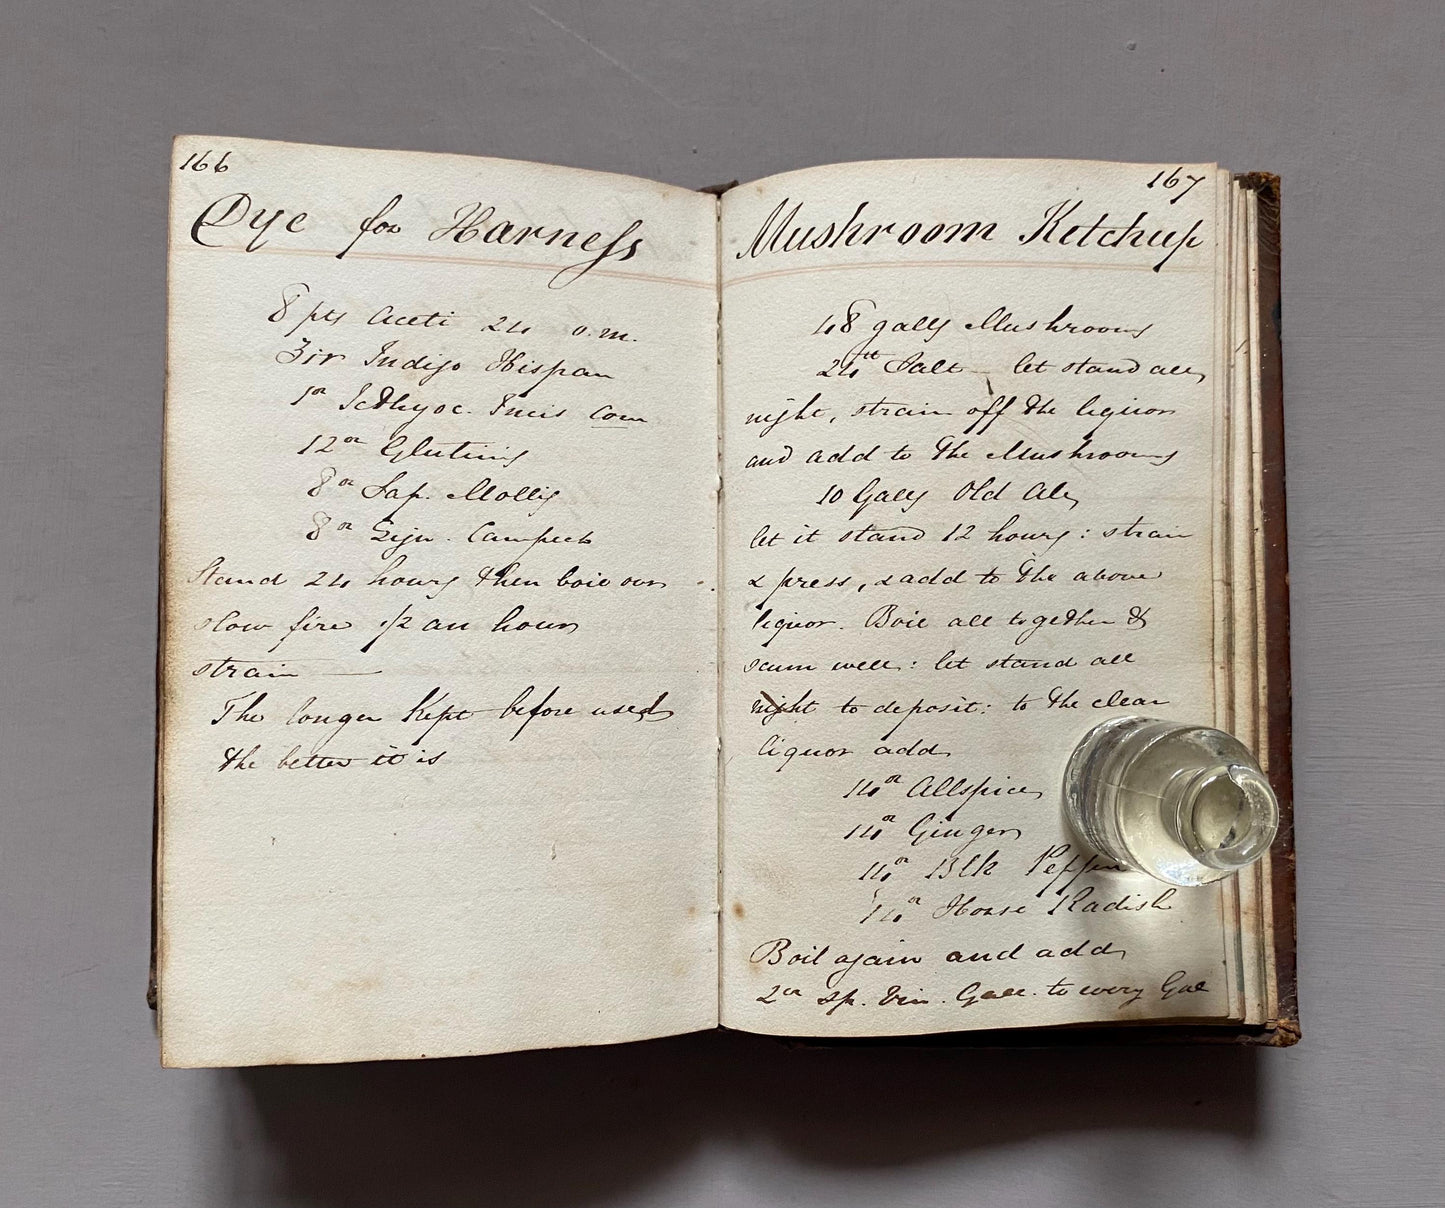 166
Dye for Harness
8 pts Aceti 24 o.m.
Indigo Hispan
1 oz Icthyoc. Incis Com
12 oz Glutinis
8 oz Sap. Mollis
8 oz Lign. Campech
Stand 24 hours then boil over
slow fire 1/2 an hour
strain —
The longer Kept before used
the better it is
167
Mushroom Ketchup
48 galls Mushrooms
24 lb Salt — let stand all
night, strain off the liquor
and add to the Mushrooms
10 Galls Old Ale,
let it stand 12 hours: strain
& press, & add to the above
liquor. Boil all together &
scum well: let stand all
night to deposit: to the clear
liquor add
14 oz Allspice
14 oz Ginger
14 oz Blk Pepper
14 oz Horse Radish
Boil again and add
2 oz sp. Vin. Gall. to every Gal